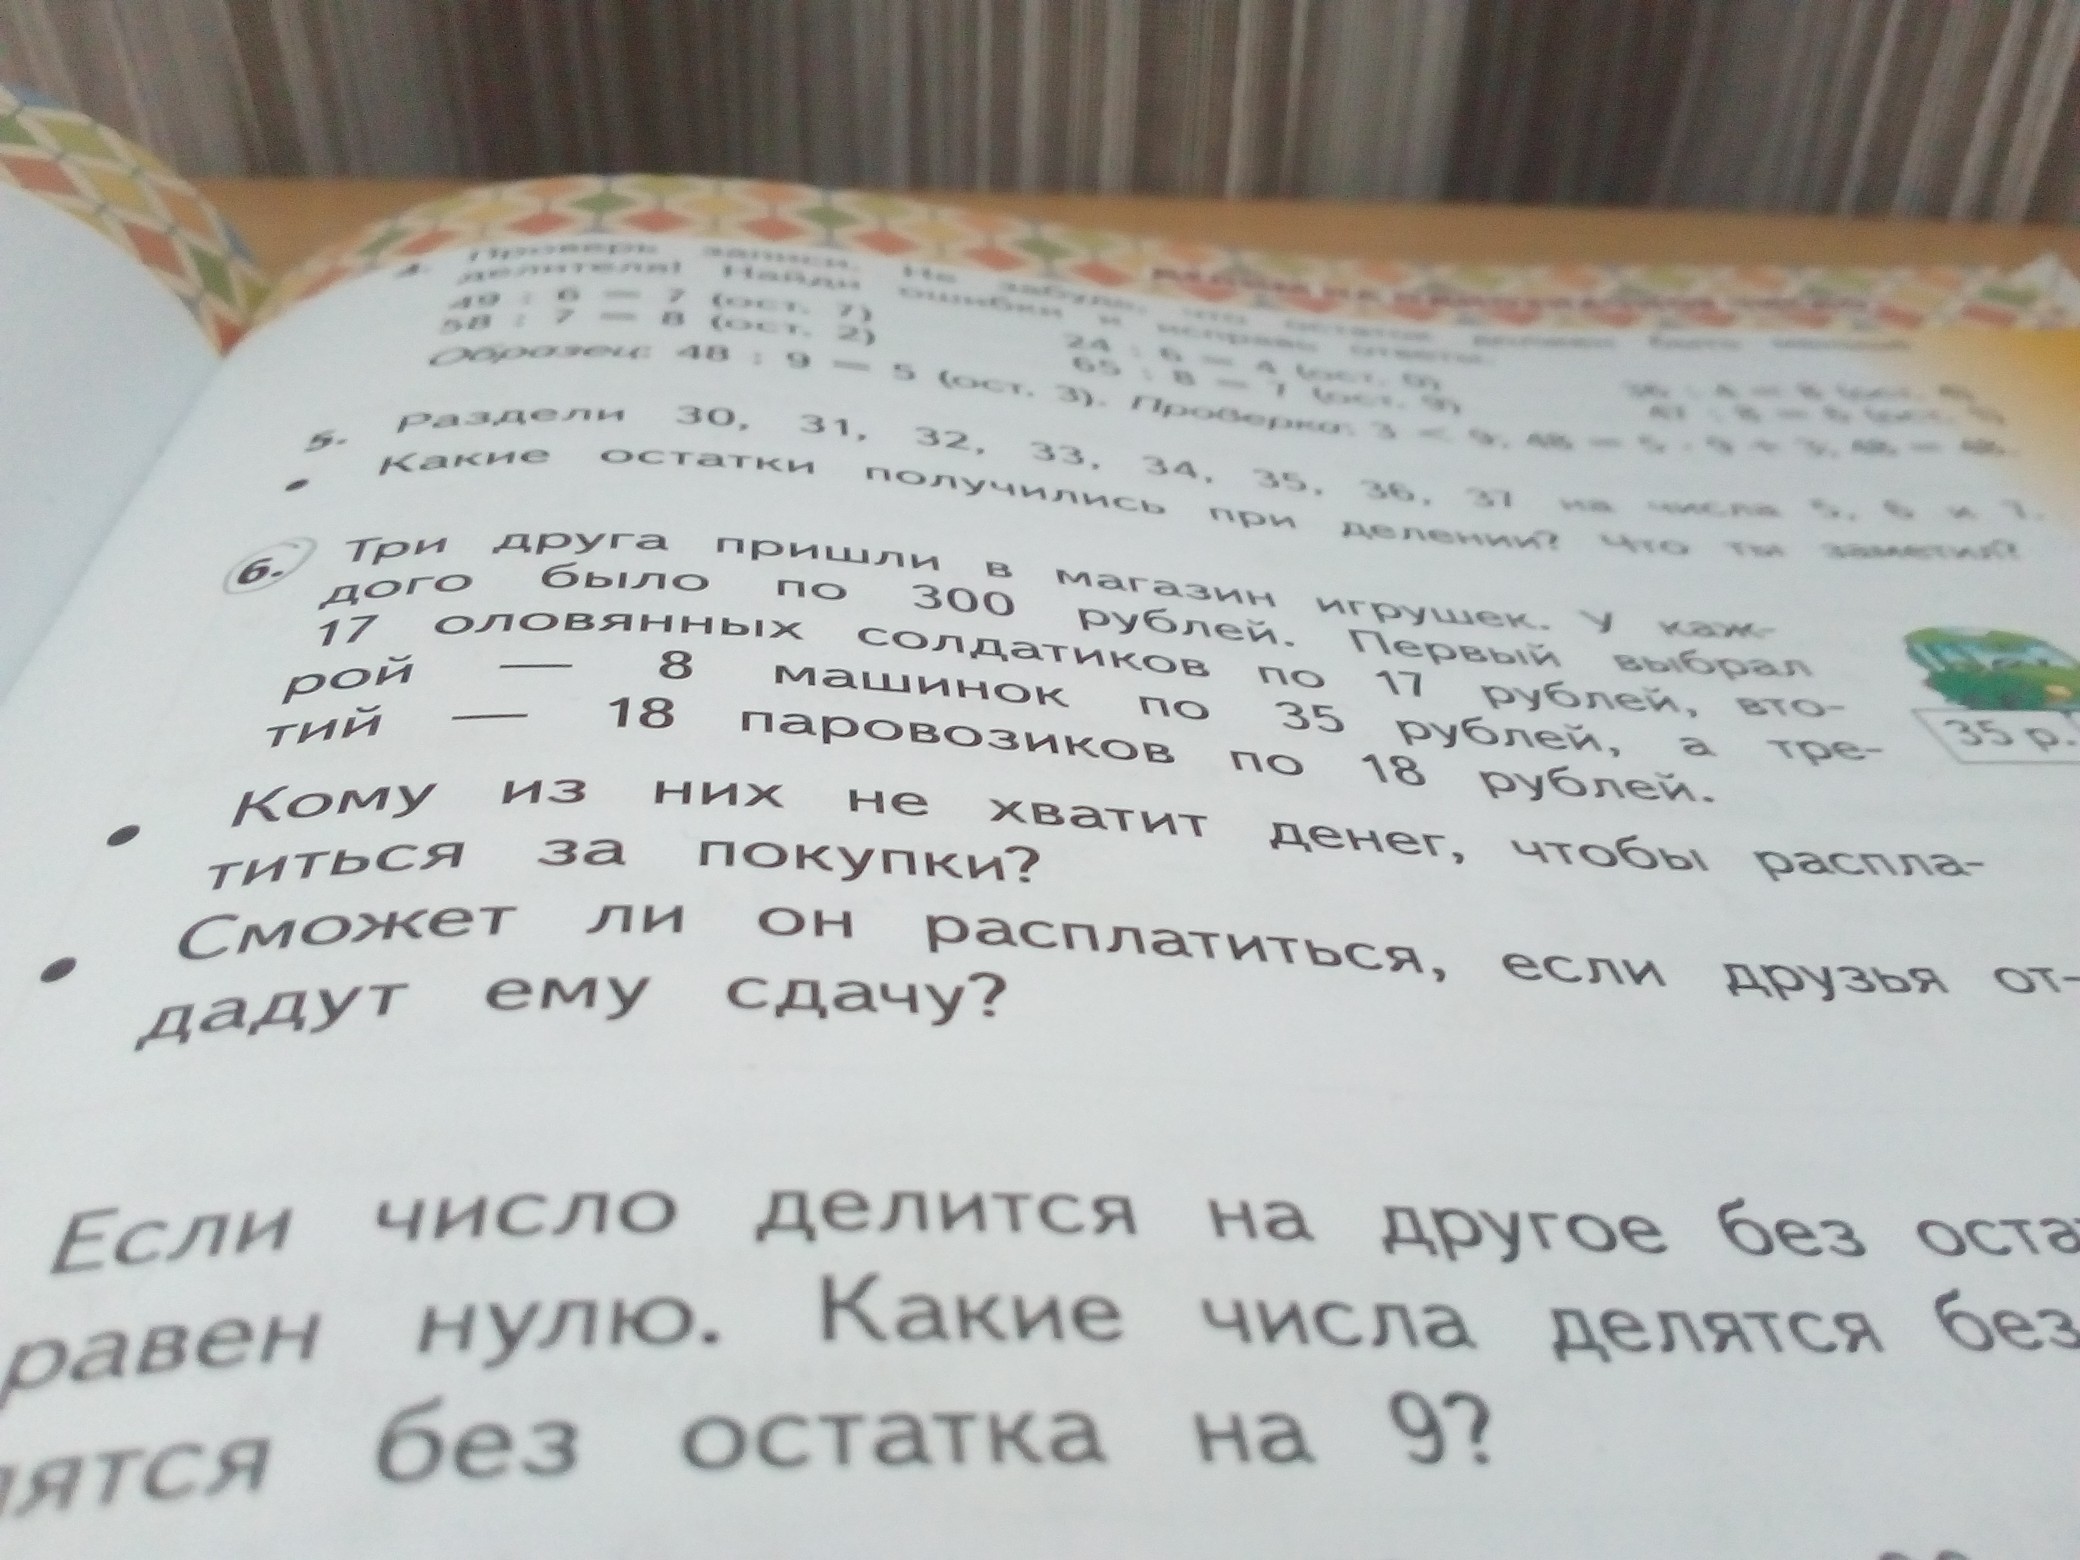 4. Проверь записи. Не забудь, что остаток должен быть меньше
делителя! Найди ошибки и исправь ответы.
49 : 6 = 7 (ост. 7) 24 : 6 = 4 (ост. 0)
58 : 7 = 8 (ост. 2) 65 : 8 = 7 (ост. 9)
Образец: 48 : 9 = 5 (ост. 3). Проверка: 3 < 9, 48 = 5 · 9 + 3, 48 = 48.
5. Раздели 30, 31, 32, 33, 34, 35, 36, 37 на числа 5, 6 и 7.
• Какие остатки получились при делении? Что ты заметил?
6. Три друга пришли в магазин игрушек. У каж-
дого было по 300 рублей. Первый выбрал
17 оловянных солдатиков по 17 рублей, вто-
рой — 8 машинок по 35 рублей, а тре-
тий — 18 паровозиков по 18 рублей.
35 р.
• Кому из них не хватит денег, чтобы распла-
титься за покупки?
• Сможет ли он расплатиться, если друзья от-
дадут ему сдачу?
Если число делится на другое без оста
равен нулю. Какие числа делятся без
лятся без остатка на 9?